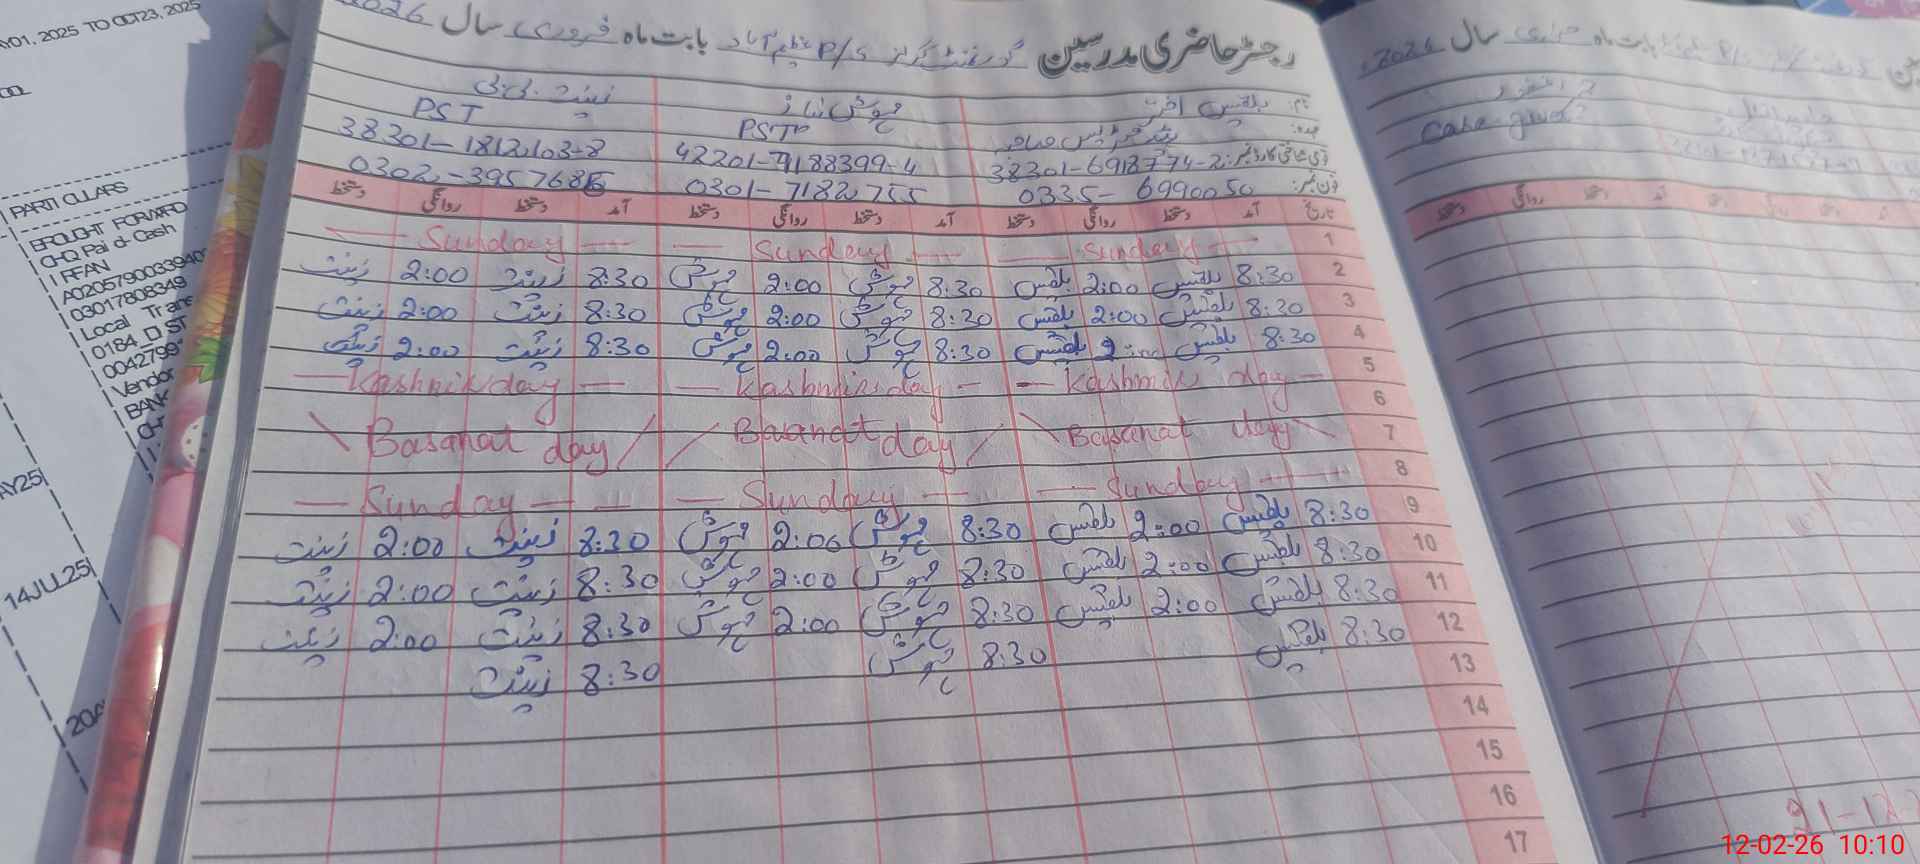 رجسٹر حاضری مدرسین گورنمنٹ گرلز P/S عظیم آباد بابت ماہ فروری سال 2026
نام: بلقیس اختر مہوش ناز زینت بی بی
عہدہ: ہیڈ مسٹریس صاحبہ PST PST
قومی شناختی کارڈ نمبر: 38301-6918774-2 42201-7188399-4 38301-1812103-8
فون نمبر: 0335-6990050 0301-7182755 0302-3957686
تاریخ آمد دستخط روانگی دستخط آمد دستخط روانگی دستخط آمد دستخط روانگی دستخط
1 Sunday Sunday Sunday
2 8:30 بلقیس 2:00 بلقیس 8:30 مہوش 2:00 مہوش 8:30 زینت 2:00 زینت
3 8:30 بلقیس 2:00 بلقیس 8:30 مہوش 2:00 مہوش 8:30 زینت 2:00 زینت
4 8:30 بلقیس 2:00 بلقیس 8:30 مہوش 2:00 مہوش 8:30 زینت 2:00 زینت
5 Kashmir day Kashmir day Kashmir day
6
7 Basanat day Basanat day Basanat day
8 Sunday Sunday Sunday
9 8:30 بلقیس 2:00 بلقیس 8:30 مہوش 2:00 مہوش 8:30 زینت 2:00 زینت
10 8:30 بلقیس 2:00 بلقیس 8:30 مہوش 2:00 مہوش 8:30 زینت 2:00 زینت
11 8:30 بلقیس 2:00 بلقیس 8:30 مہوش 2:00 مہوش 8:30 زینت 2:00 زینت
12 8:30 بلقیس 8:30 مہوش 8:30 زینت
13
14
15
16
17
بابت ماہ جنوری سال 2026
Y01, 2025 TO OCT23, 2025
PARTICULARS
BROUGHT FORWARD
CHQ Paid Cash
IRFAN
A0205790033940
03017808349
Local Trans
0184_DIST
0042799
Vendor
BANK
AY25
14JUL25
20A
21-12
12-02-26 10:10